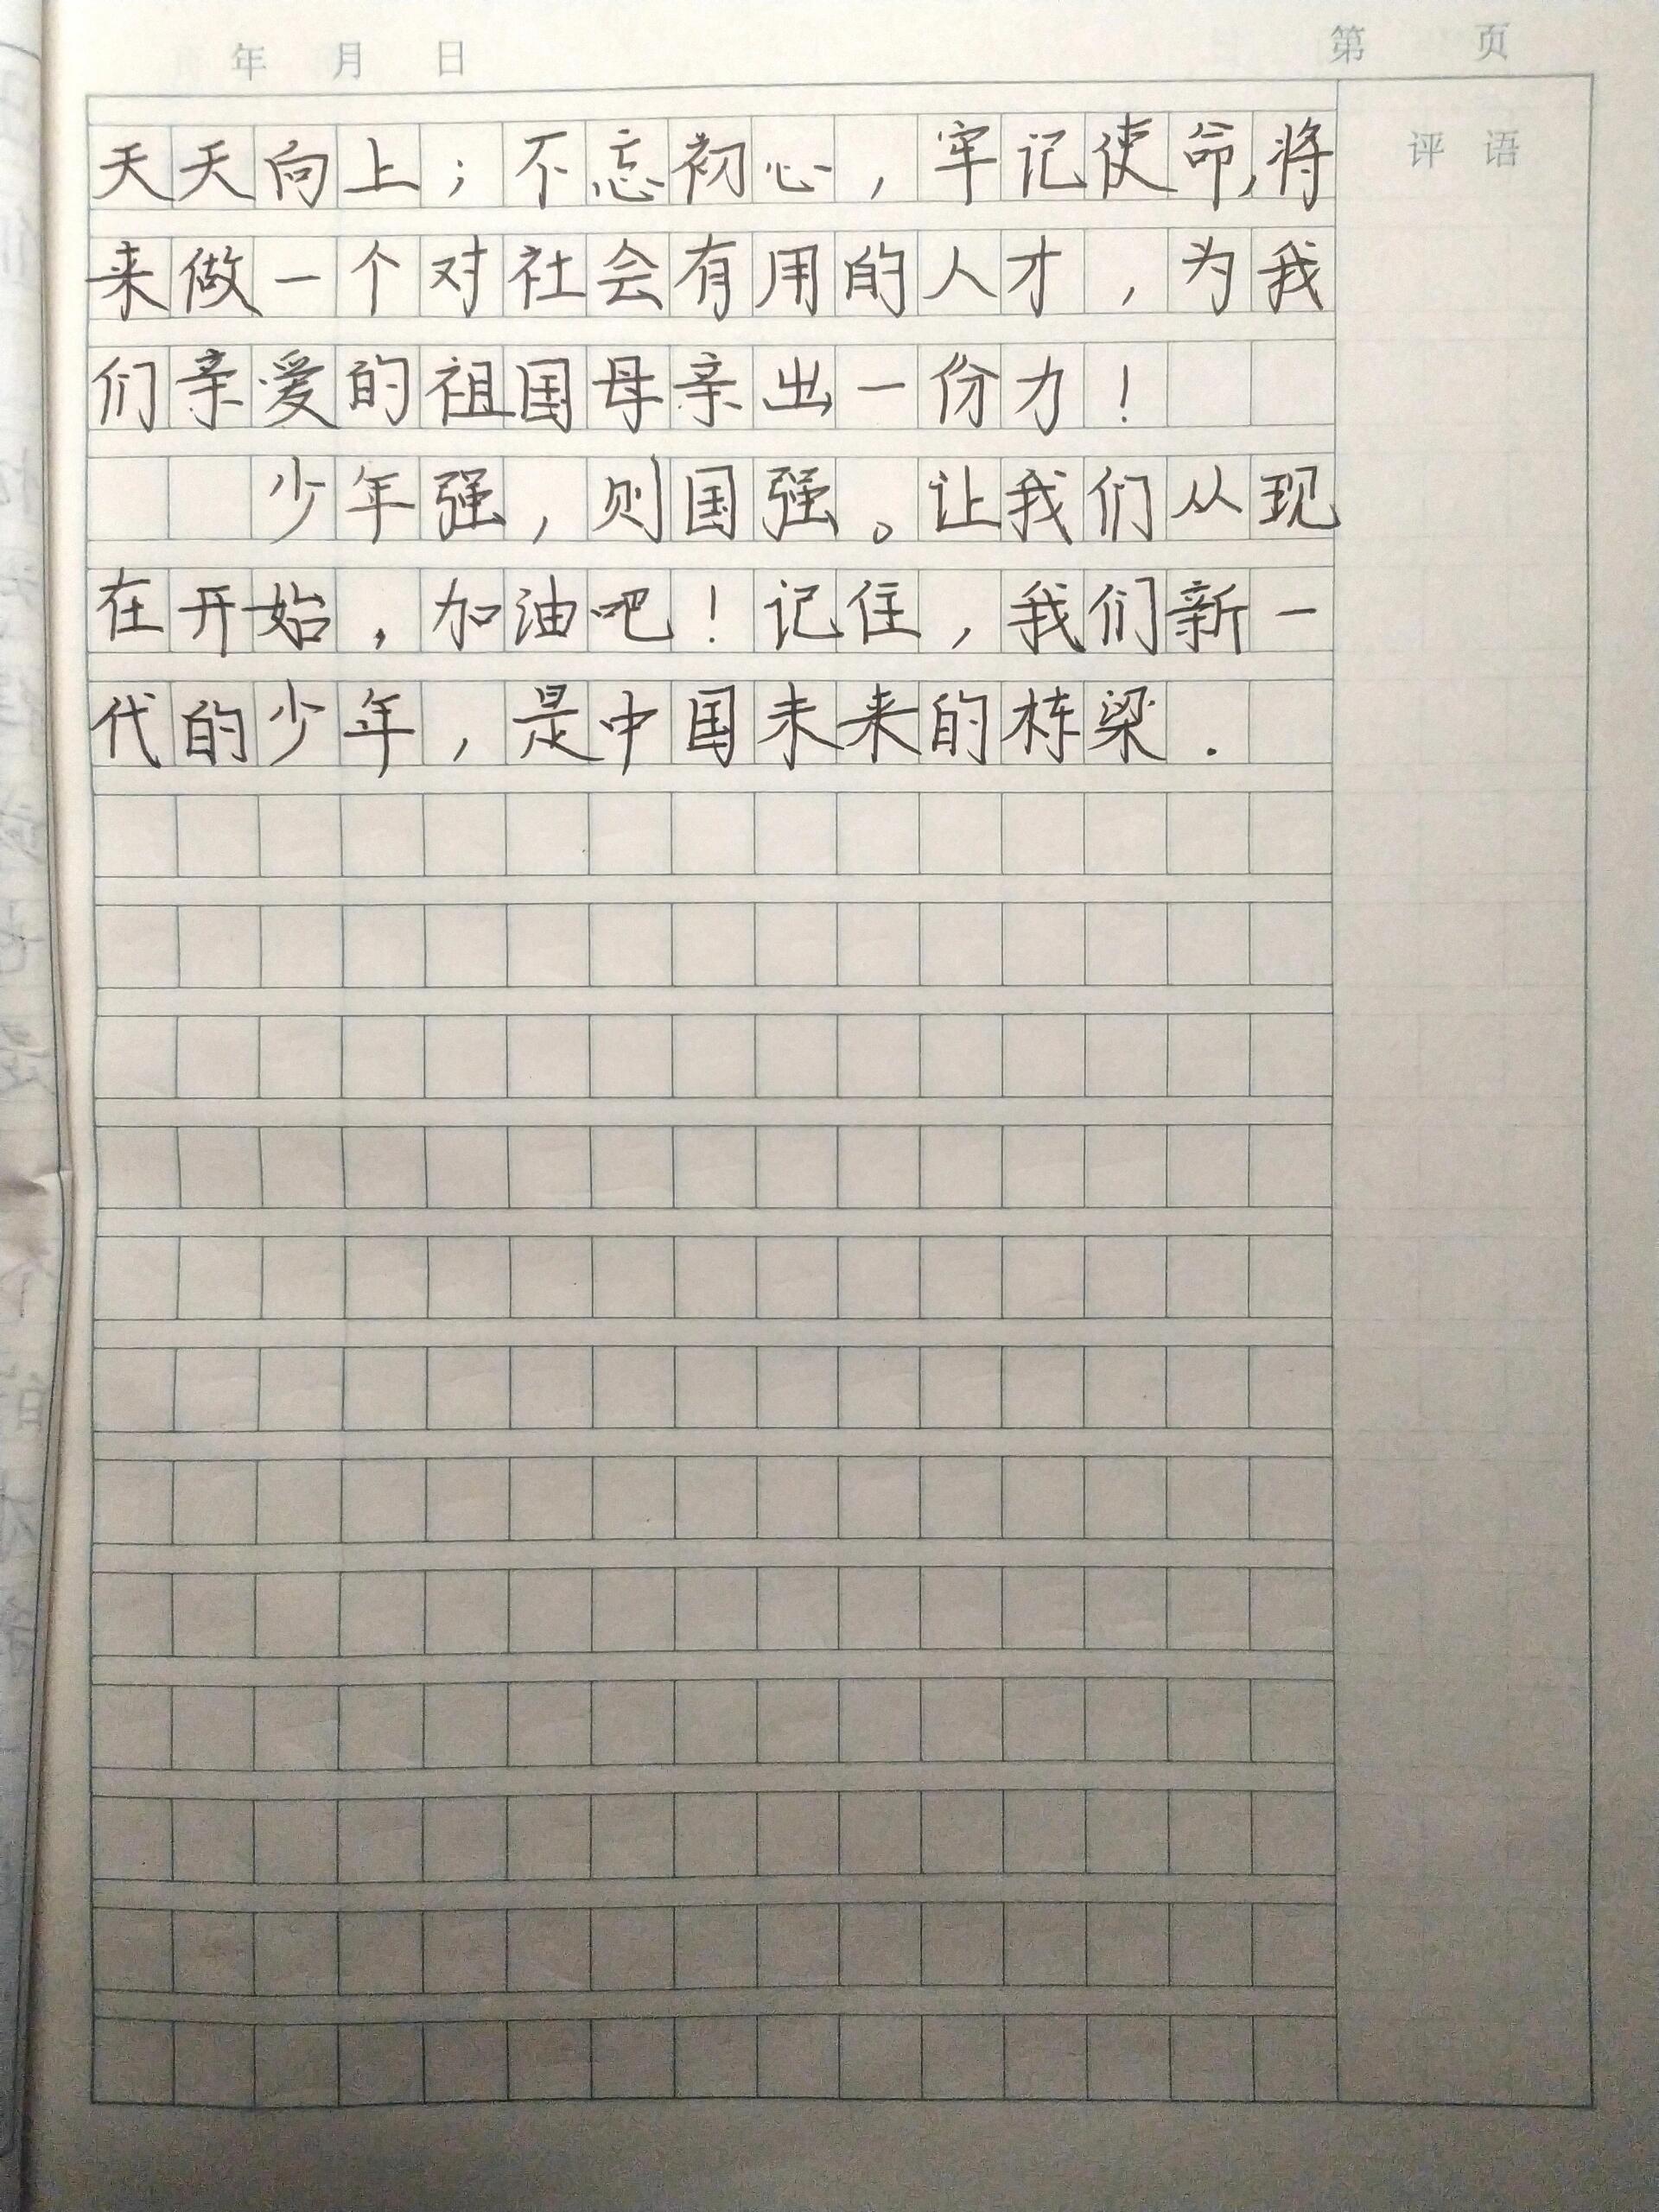 年 月 日 第 页
评语
天天向上；不忘初心，牢记使命，将
来做一个对社会有用的人才，为我
们亲爱的祖国母亲出一份力！
少年强，则国强。让我们从现
在开始，加油吧！记住，我们新一
代的少年，是中国未来的栋梁.